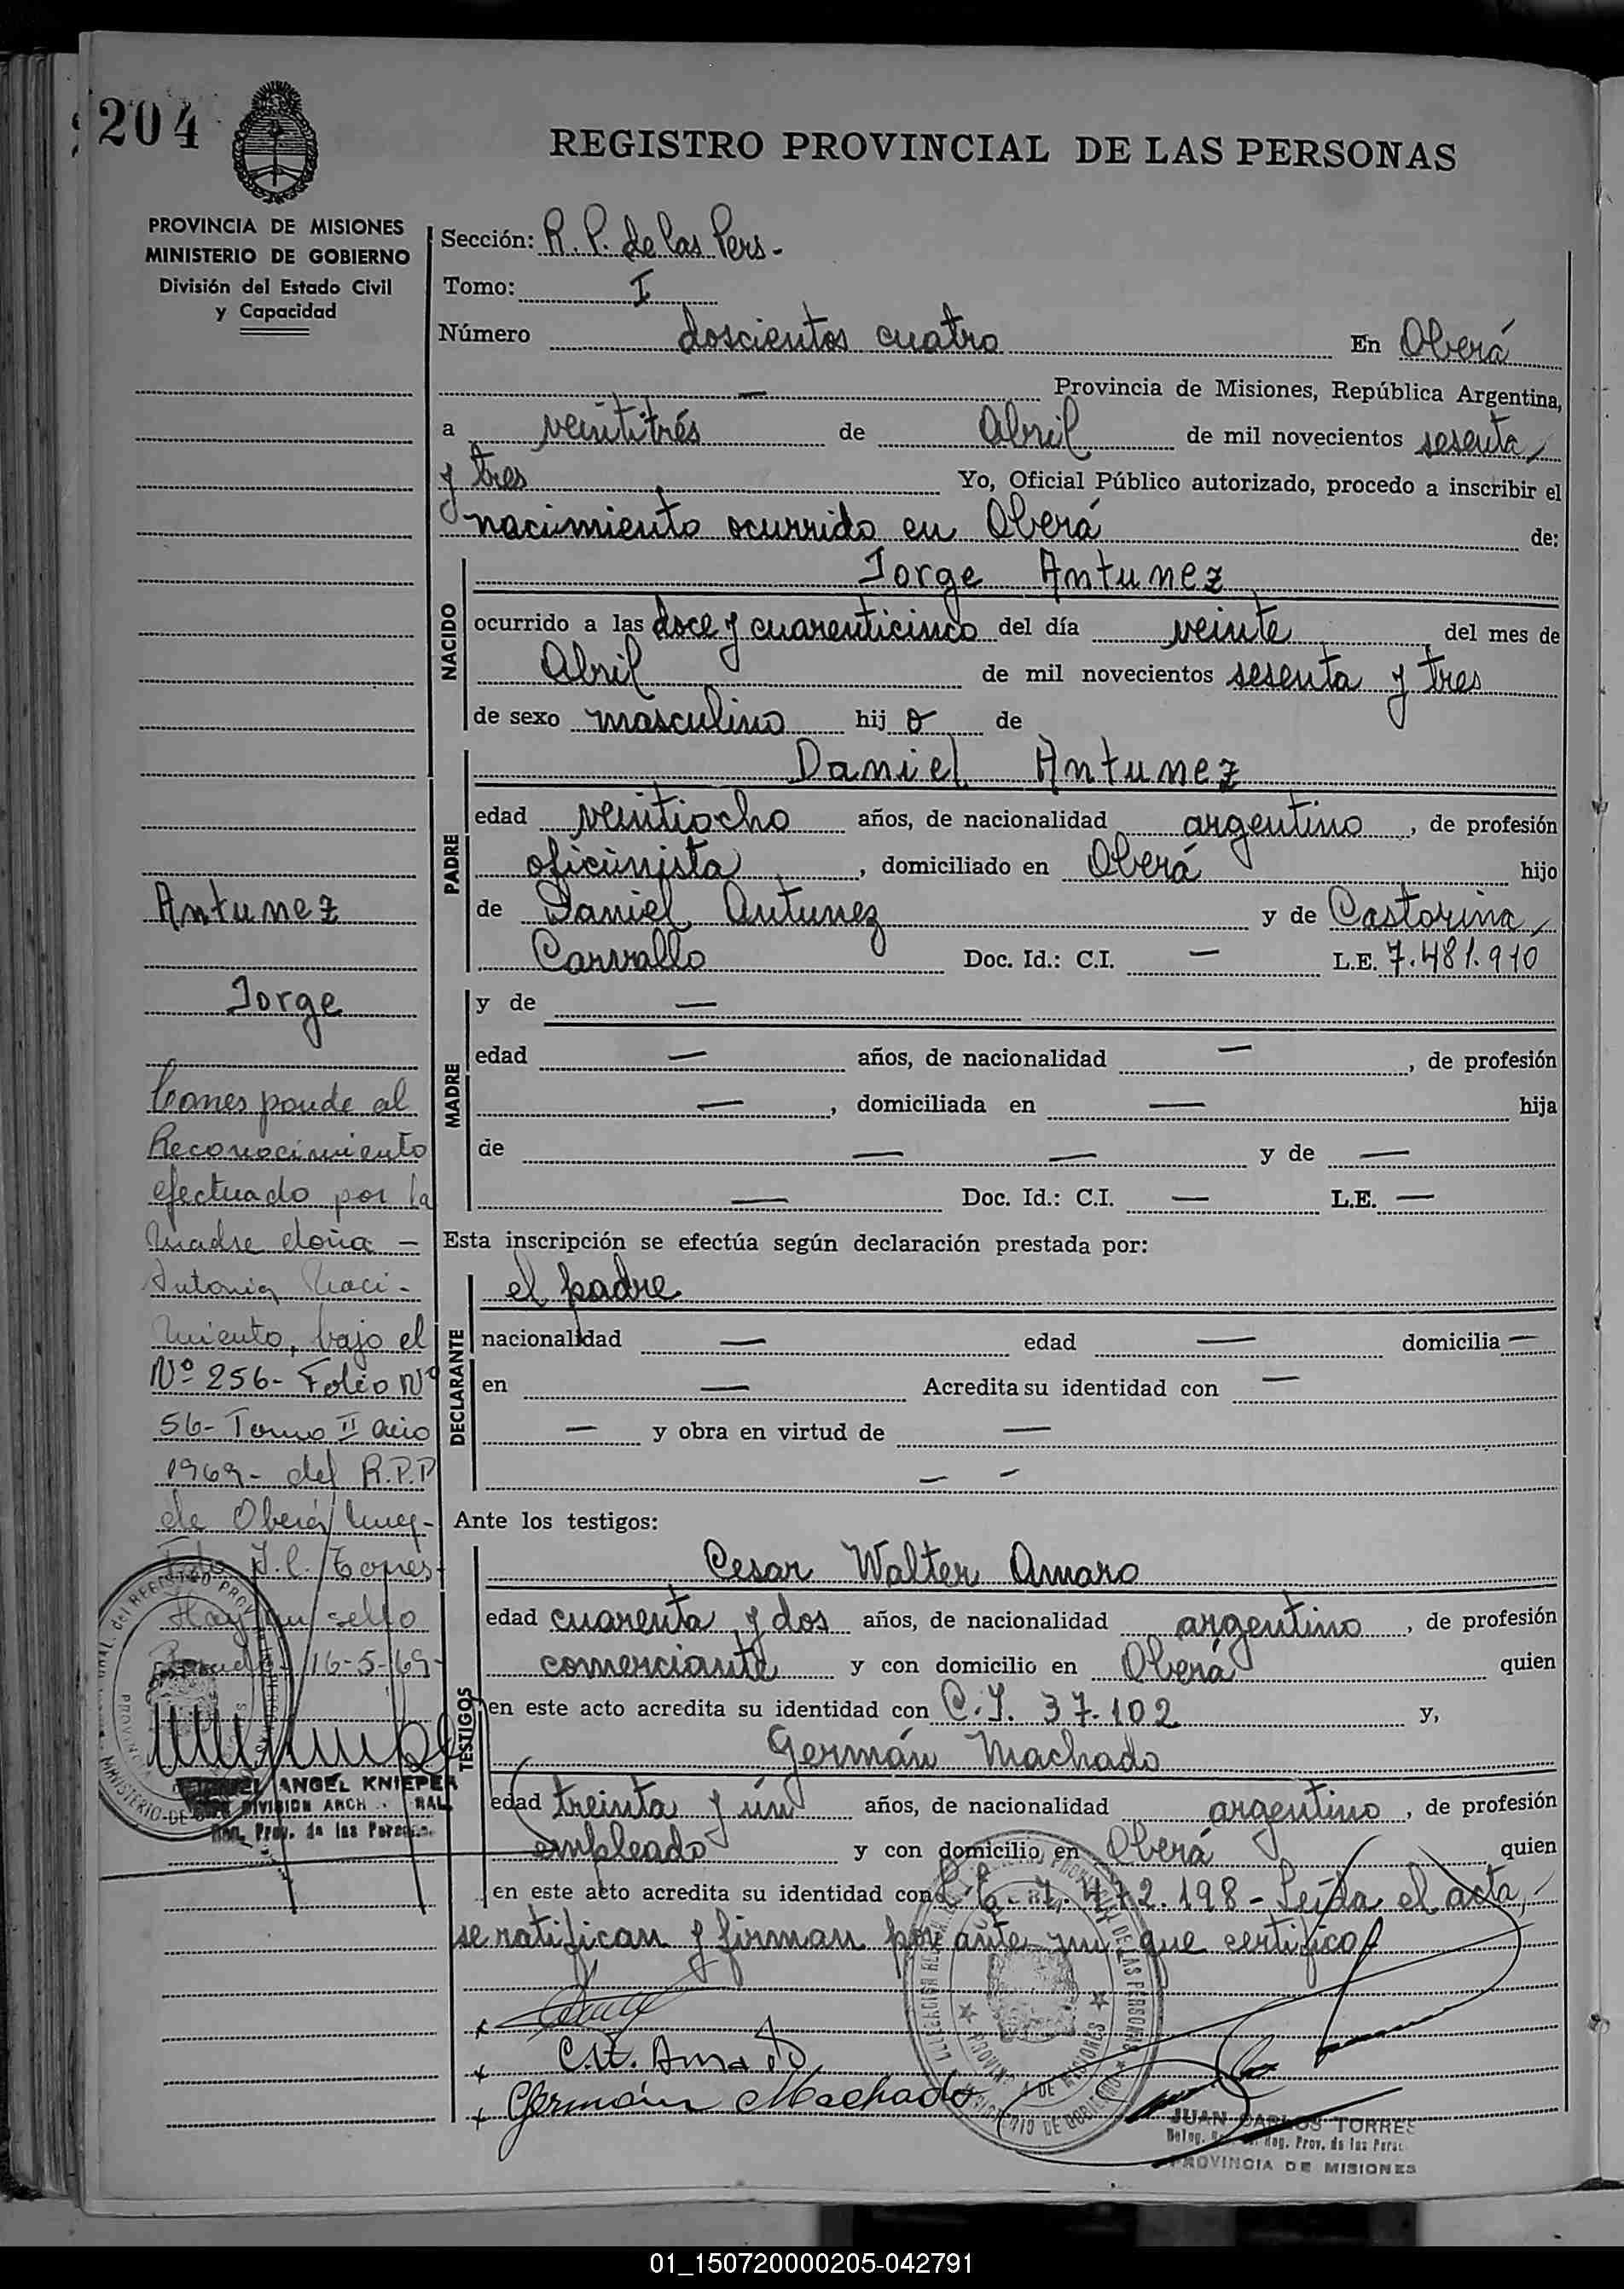 204
REGISTRO PROVINCIAL DE LAS PERSONAS
PROVINCIA DE MISIONES
MINISTERIO DE GOBIERNO
División del Estado Civil
y Capacidad
Sección: R. P. de las Pers -
Tomo: I
Número doscientos cuatro En Oberá
— Provincia de Misiones, República Argentina,
a veintitrés de Abril de mil novecientos sesenta
y tres Yo, Oficial Público autorizado, procedo a inscribir el
nacimiento ocurrido en Oberá de:
NACIDO
Jorge Antunez
ocurrido a las doce y cuarenticinco del día veinte del mes de
Abril de mil novecientos sesenta y tres
de sexo masculino hijo de
PADRE
Daniel Antunez
edad veintiocho años, de nacionalidad argentino, de profesión
oficinista, domiciliado en Oberá hijo
de Daniel Antunez y de Castorina
Carvallo Doc. Id.: C.I. — L.E. 7.481.910
MADRE
y de —
edad — años, de nacionalidad —, de profesión
—, domiciliada en — hija
de — — y de —
— Doc. Id.: C.I. — L.E. —
Esta inscripción se efectúa según declaración prestada por:
DECLARANTE
el padre
nacionalidad — edad — domicilia —
en — Acredita su identidad con —
— y obra en virtud de —
— —
Ante los testigos:
TESTIGOS
Cesar Walter Amaro
edad cuarenta y dos años, de nacionalidad argentino, de profesión
comerciante y con domicilio en Oberá quien
en este acto acredita su identidad con C.I. 37.102 y,
Germán Machado
edad treinta y ún años, de nacionalidad argentino, de profesión
empleado y con domicilio en Oberá quien
en este acto acredita su identidad con 2.198 - Leída el acta,
se ratifican y firman por ante mi que certifico
Germán Machado
JUAN CARLOS TORRES
Reg. Prov. de las Pers.
PROVINCIA DE MISIONES
Antunez
Jorge
Corresponde al
Reconocimiento
efectuado por la
Madre doña —
Antonia Naci-
miento, bajo el
Nº 256 - Folio Nº
56 - Tomo II año
1969 - del R.P.P
de Oberá
J.C. Torres
Hay un sello
16-5-69
ANGEL KNIEPER
DIVISION ARCH
Reg. Prov. de las Personas
01_150720000205-042791